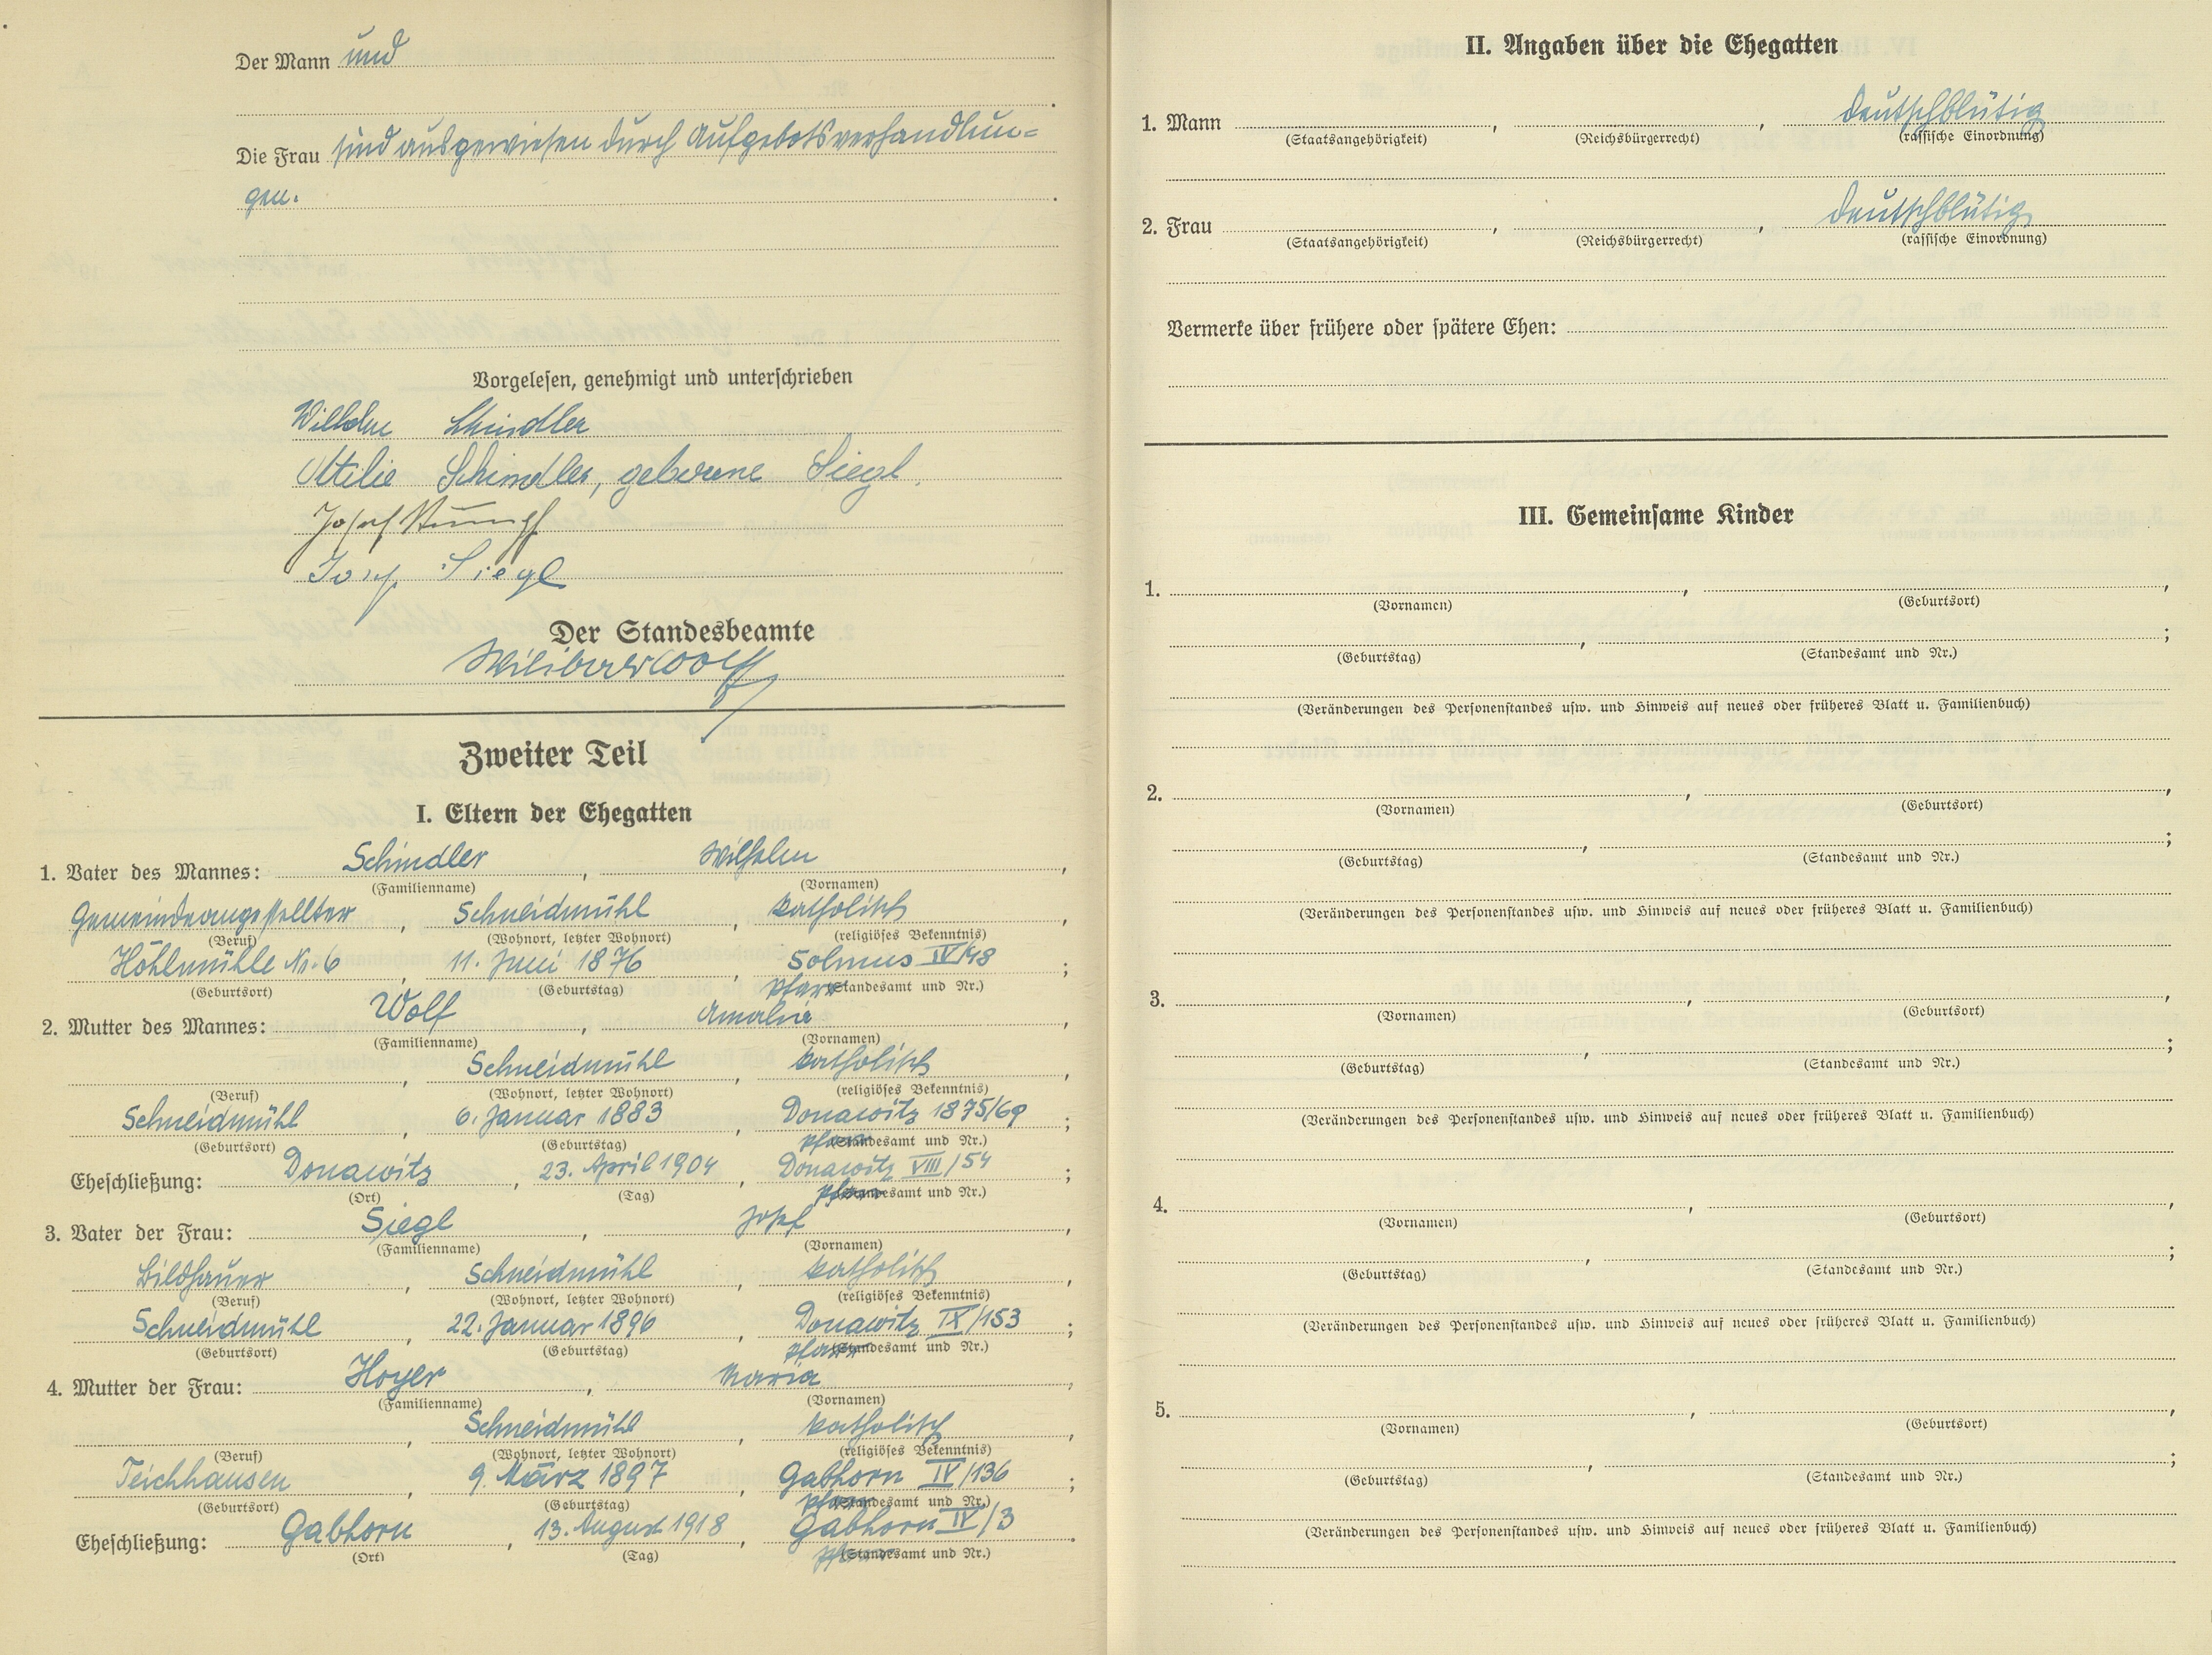 Der Mann und
.
Die Frau sind ausgewiesen durch Aufgebotsverhandlun=
gen. .
Vorgelesen, genehmigt und unterschrieben
Wilhelm Schindler
Ottilie Schindler, geborene Siegl.
Josef Stumpf
Josef Siegl
Der Standesbeamte
Zweiter Teil
I. Eltern der Ehegatten
1. Vater des Mannes: Schindler, Wilhelm,
(Familienname) (Vornamen)
Gemeindeangestellter, Schneidmühl, katholisch,
(Beruf) (Wohnort, letzter Wohnort) (religiöses Bekenntnis)
Höhlmühle Nr. 6, 11. Juni 1876, Solmus IV/48;
(Geburtsort) (Geburtstag) Pfarr (Standesamt und Nr.)
2. Mutter des Mannes: Wolf, Amalia,
(Familienname) (Vornamen)
, Schneidmühl, katholisch,
(Beruf) (Wohnort, letzter Wohnort) (religiöses Bekenntnis)
Schneidmühl, 6. Januar 1883, Donawitz 1875/69;
(Geburtsort) (Geburtstag) Pfarr (Standesamt und Nr.)
Eheschließung: Donawitz, 23. April 1904, Donawitz VIII/54;
(Ort) (Tag) Pfarr (Standesamt und Nr.)
3. Vater der Frau: Siegl, Josef,
(Familienname) (Vornamen)
Bildhauer, Schneidmühl, katholisch,
(Beruf) (Wohnort, letzter Wohnort) (religiöses Bekenntnis)
Schneidmühl, 22. Januar 1896, Donawitz IX/153;
(Geburtsort) (Geburtstag) Pfarr (Standesamt und Nr.)
4. Mutter der Frau: Hoyer, Maria,
(Familienname) (Vornamen)
, Schneidmühl, katholisch,
(Beruf) (Wohnort, letzter Wohnort) (religiöses Bekenntnis)
Teichhausen, 9. März 1897, Gabhorn IV/136;
(Geburtsort) (Geburtstag) Pfarr (Standesamt und Nr.)
Eheschließung: Gabhorn, 13. August 1918, Gabhorn IV/3.
(Ort) (Tag) Pfarr (Standesamt und Nr.)
II. Angaben über die Ehegatten
1. Mann , , deutschblütig
(Staatsangehörigkeit) (Reichsbürgerrecht) (rassische Einordnung)
2. Frau , , deutschblütig
(Staatsangehörigkeit) (Reichsbürgerrecht) (rassische Einordnung)
Vermerke über frühere oder spätere Ehen:
III. Gemeinsame Kinder
1. , ,
(Vornamen) (Geburtsort)
, ;
(Geburtstag) (Standesamt und Nr.)
(Veränderungen des Personenstandes usw. und Hinweis auf neues oder früheres Blatt u. Familienbuch)
2. , ,
(Vornamen) (Geburtsort)
, ;
(Geburtstag) (Standesamt und Nr.)
(Veränderungen des Personenstandes usw. und Hinweis auf neues oder früheres Blatt u. Familienbuch)
3. , ,
(Vornamen) (Geburtsort)
, ;
(Geburtstag) (Standesamt und Nr.)
(Veränderungen des Personenstandes usw. und Hinweis auf neues oder früheres Blatt u. Familienbuch)
4. , ,
(Vornamen) (Geburtsort)
, ;
(Geburtstag) (Standesamt und Nr.)
(Veränderungen des Personenstandes usw. und Hinweis auf neues oder früheres Blatt u. Familienbuch)
5. , ,
(Vornamen) (Geburtsort)
, ;
(Geburtstag) (Standesamt und Nr.)
(Veränderungen des Personenstandes usw. und Hinweis auf neues oder früheres Blatt u. Familienbuch)